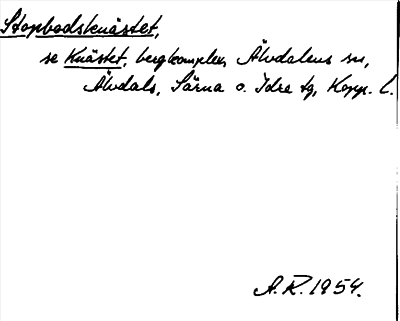 Stopbodsknästet,
se Knästet, bergkomplex, Älvdalens sn,
Älvdals, Särna o. Idre tg, Kopp. l.
A.R. 1954.